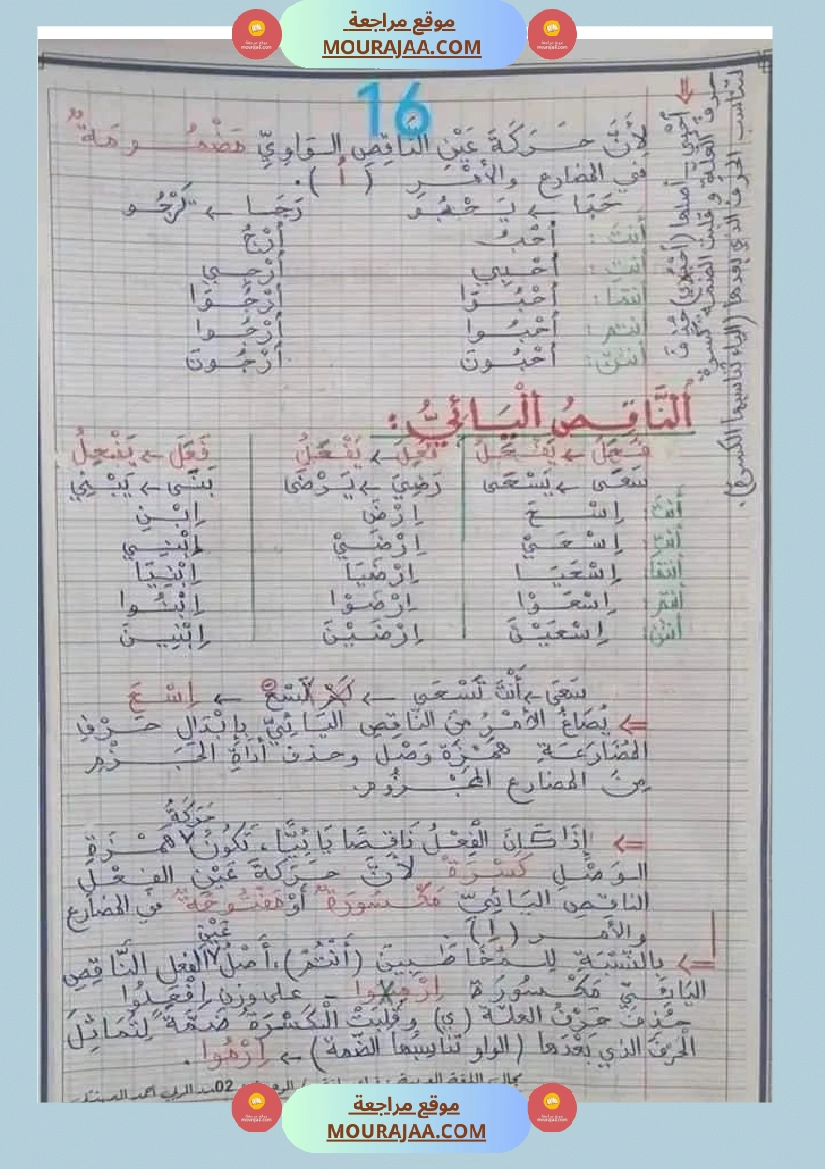 موقع مراجعة
MOURAJAA.COM
16
لِأَنَّ حَرَكَةَ عَيْنِ النَّاقِصِ الوَاوِيِّ مَضْمُومَةٌ
في المضارع والأمْرِ ( اُ ).
حَبَا ← يَحْبُو رَجَا ← يَرْجُو
أنتَ: اُحْبُ اُرْجُ
أنتِ: اُحْبِي اُرْجِي
أنتما: اُحْبُوَا اُرْجُوَا
أنتم: اُحْبُوا اُرْجُوا
أنتنّ: اُحْبُونَ اُرْجُونَ
اُحْبِي = أصلها (اُحْبُوِي) حُذِفَ
حرف العلّة و قلبت الضمّة كسرة
لتناسب الحرف الذي بعدها (الياء تناسبها الكسرة).
النَّاقِصُ الْيَائِيُّ:
فَعَلَ ← يَفْعَلُ فَعِلَ ← يَفْعَلُ فَعَلَ ← يَفْعِلُ
سَعَى ← يَسْعَى رَضِيَ ← يَرْضَى بَنَى ← يَبْنِي
أنتَ: اِسْعَ اِرْضَ اِبْنِ
أنتِ: اِسْعَيْ اِرْضَيْ اِبْنِي
أنتما: اِسْعَيَا اِرْضَيَا اِبْنِيَا
أنتم: اِسْعَوْا اِرْضَوْا اِبْنُوا
أنتنّ: اِسْعَيْنَ اِرْضَيْنَ اِبْنِينَ
سَعَى ← أَنْتَ تَسْعَى ← لَمْ تَسْعَ ← اِسْعَ
⇐ يُصَاغُ الأَمْرُ مِنَ النَّاقِصِ اليَائِيِّ بِإِبْدَالِ حَرْفِ
المُضَارَعَةِ هَمْزَةَ وَصْلٍ وحذف أَدَاةِ الجَزْمِ
مِنَ المضارع المَجْزُومِ.
⇐ إِذَا كَانَ الْفِعْلُ نَاقِصًا يَائِيًّا، تَكُونُ حَرَكَةُ هَمْزَةِ
الوَصْلِ كَسْرَةً لأَنَّ حَرَكَةَ عَيْنِ الفِعْلِ
الناقِصِ اليَائِيِّ مَكْسُورَةٌ أَوْ مَفْتُوحَةٌ في المضارع
والأمر ( اِ ).
⇐ بِالنِّسْبَةِ لِلْمُخَاطَبِينَ (أَنْتُمْ)، أَصْلُ عَيْنِ الفِعلِ النَّاقِصِ
اليَائِيِّ مَكْسُورَة اِرْمِيُوا - على وزن اِفْعِلُوا
حُذِفَ حَرْفُ العلّة (ي) وقُلِبَتْ الْكَسْرَةُ ضَمَّةً لِتُمَاثِلَ
الحَرْفَ الذي بَعْدَهَا (الواو تناسِبُها الضمّة) ← اِرْمُوا.
موقع مراجعة
MOURAJAA.COM